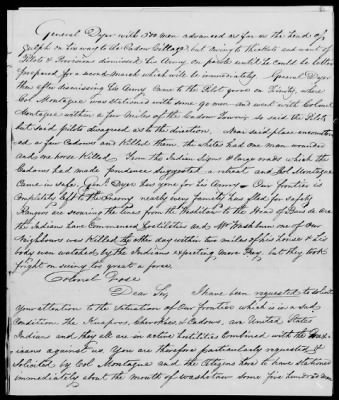 General Dyer with 300 men advanced as far as the head of
Gulph on his way to the Cadow Village, but owing to thickets and want of
Pilots & Provisions dismissed his Army on parole until he could be better
prepared for a second march which will be immediately. General Dyer
then after dismissing his Army Came to the Pilot grove on Trinity, where
Col Montague was stationed with some 90 men and went with Colonel
Montague within a few miles of the Cadow Towns so said the Pilots
but said pilots disagreed as to the direction. Near said place encounter-
ed a few Cadows and killed them. The whites had one man wounded
and one horse killed. From the Indian Signs & large roads which the
Cadows had made prudence suggested a retreat, and Col Montague
Came in safe. Genl Dyer has gone for his Army. Our frontier is
completely left to the Enemy nearly every family has fled for safety
Rangers are scouring the lines from the to the Head of Bois de arc
the Indians have Commenced hostilities and Mr Washburn one of our
Neighbours was killed the other day within two miles of his house & his
body even watched by the Indians expecting more Prey, but they took
fright on seeing too great a force.
Colonel
Dear Sir, I have been requested to solicit
your attention to the Situation of our frontier which is in a sad
condition the Kicapoos, Cherokees & Cadows, are United States
Indians and they all are in active hostilities Combined with the Mex-
icans against us. You are therefore particularly requested &
solicited by Col Montague and the Citizens here to have stationed
immediately about the mouth of Washetaw some five hundred men